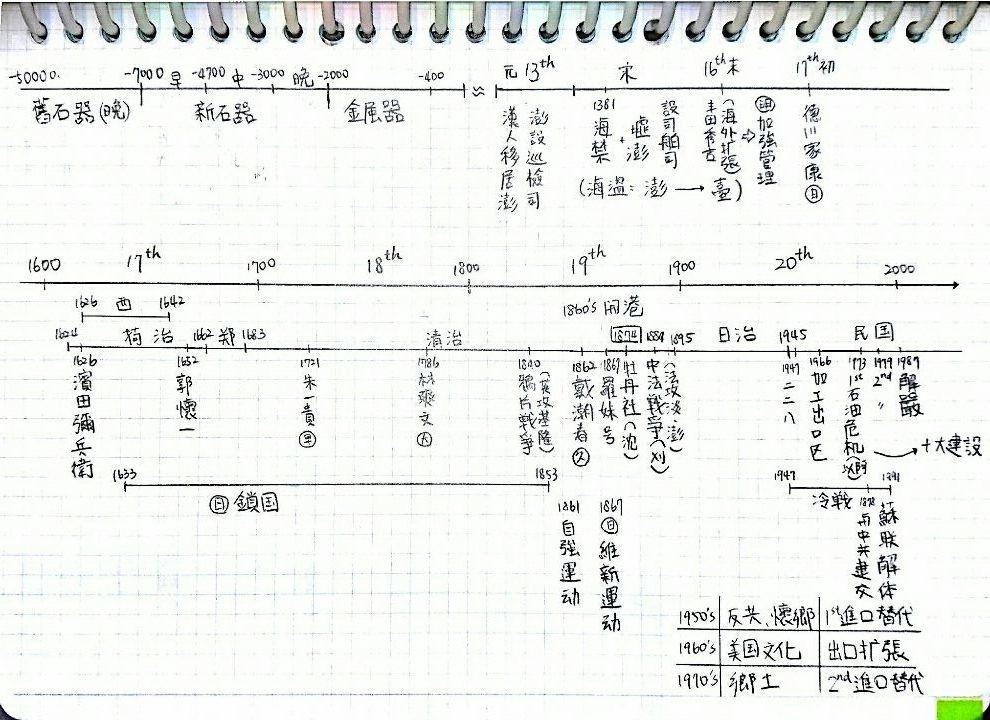 -50000. -7000 早 -4700 中 -3000 晚 -2000 -400 ≈ 元 13th 宋 16th末 17th初
舊石器(晚) 新石器 金属器
漢人移居澎
澎設巡檢司
1381 海禁 + 墟澎
設司舶司
(海盜: 澎 → 臺)
丰田秀吉
(海外扩張)
⇨
明 加強管理
德川家康 日
1600 17th 1700 18th 1800 19th 1900 20th 2000
1626 西 1642
1860's 開港
1624 荷治 1662 郑 1683 清治 1874 1884 1895 日治 1945 民国
1626 濱田彌兵衛
1652 郭懷一
1721 朱一貴 早
1786 林爽文 大
1840 鴉片戰爭
(英攻基隆)
1862 戴潮春 久
1867 羅妹号
牡丹社(沈)
中法戦争(刘)
(法攻淡、澎)
1947 二二八
1966 加工出口区
1973 1st 石油危机(以阿) → 十大建設
1979 2nd 〃
1987 解嚴
1633 1853
日 鎖国
1947 1991
冷戦
1978 与中共建交
蘇联解体
1861 自强運动
1867 日維新運动
1950's 反共、懷鄉 1st進口替代
1960's 美国文化 出口扩張
1970's 鄉土 2nd進口替代